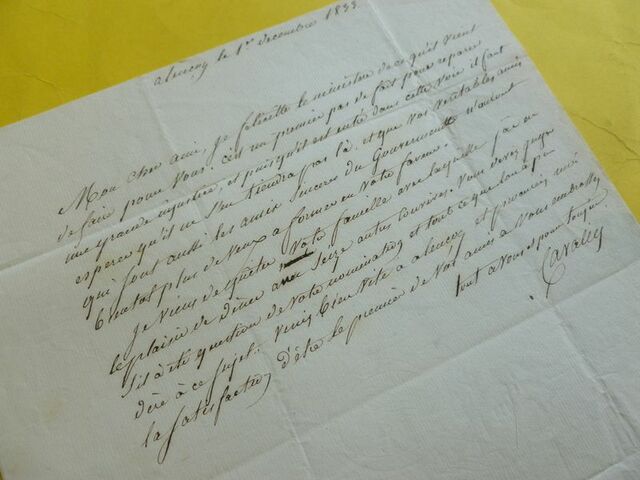 alençon le 1er decembre 1833.
Mon cher ami, je felicitte le ministre de ce qu'il vient
de faire pour vous. c'est un premier pas de fait pour reparer
une grande injustice, et puisqu'il est entré dans cette voie il faut
esperer qu'il ne s'en tiendra pas là, et que vos veritables amis
qui sont aussi les amis sincères du Gouvernement n'auront
bientot plus de vœux a former en votre faveur.
Je viens de quitter votre famille avec laquelle j'ai eu
le plaisir de diner avec seize autres convives. Vous devez juger
s'il a été question de votre nomination et tout ce que l'on a pu
dire à ce sujet. venez bien vite a alençon et procurez moi
la satisfaction d'être le premier de vos amis a vous embrasser
tout a vous et pour toujours